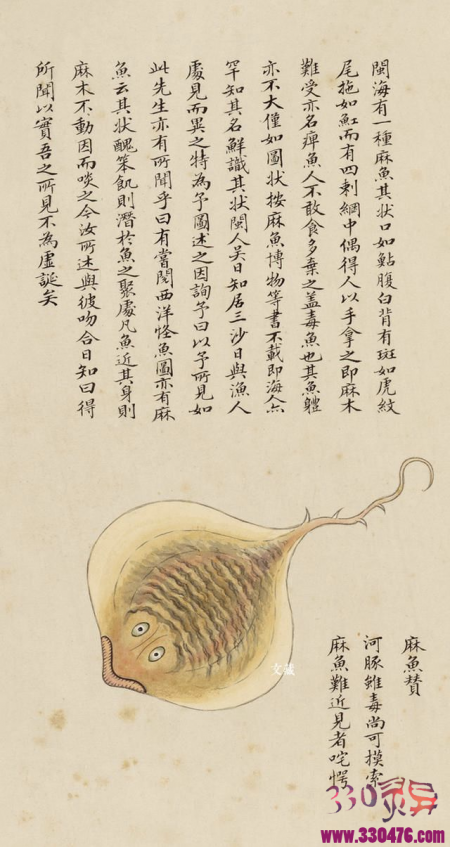 閩海有一種麻魚其狀口如鮎腹白背有斑如虎紋
尾拖如魟而有四刺網中偶得人以手拿之即麻木
難受亦名痺魚人不敢食多棄之盖毒魚也其魚軆
亦不大僅如圖狀按麻魚博物等書不載即海人亦
罕知其名鮮識其狀閩人吳日知居三沙日與漁人
處見而異之特為予圖述之因詢予曰以予所見如
此先生亦有所聞乎曰有嘗閱西洋怪魚圖亦有麻
魚云其狀醜笨飢則潛於魚之聚處凡魚近其身則
麻木不動因而啖之今汝所述與彼吻合日知曰得
所聞以實吾之所見不為虛誕矣
麻魚賛
河豚雖毒尚可摸索
麻魚難近見者咤愕
330
www.330476.com